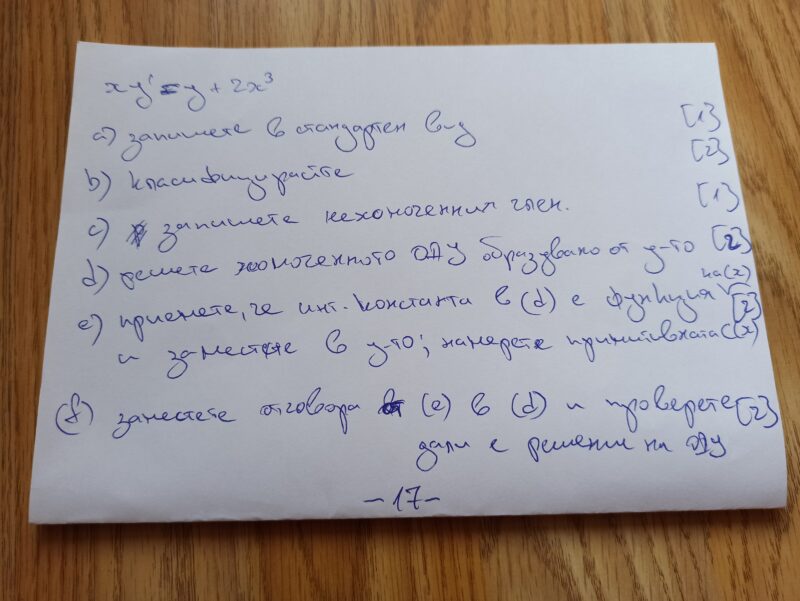 xy' = y + 2x³
a) запишете в стандартен вид [1]
b) класифицирайте [2]
c) запишете нехомогенния член. [1]
d) решете хомогенното ОДУ образувано от у-то [2]
e) приемете, че инт. константа в (d) е функция на (x) [2]
и заместете в у-то; намерете примитивната C(x)
(f) заместете отговора от (e) в (d) и проверете [2]
дали е решение на ОДУ
-17-